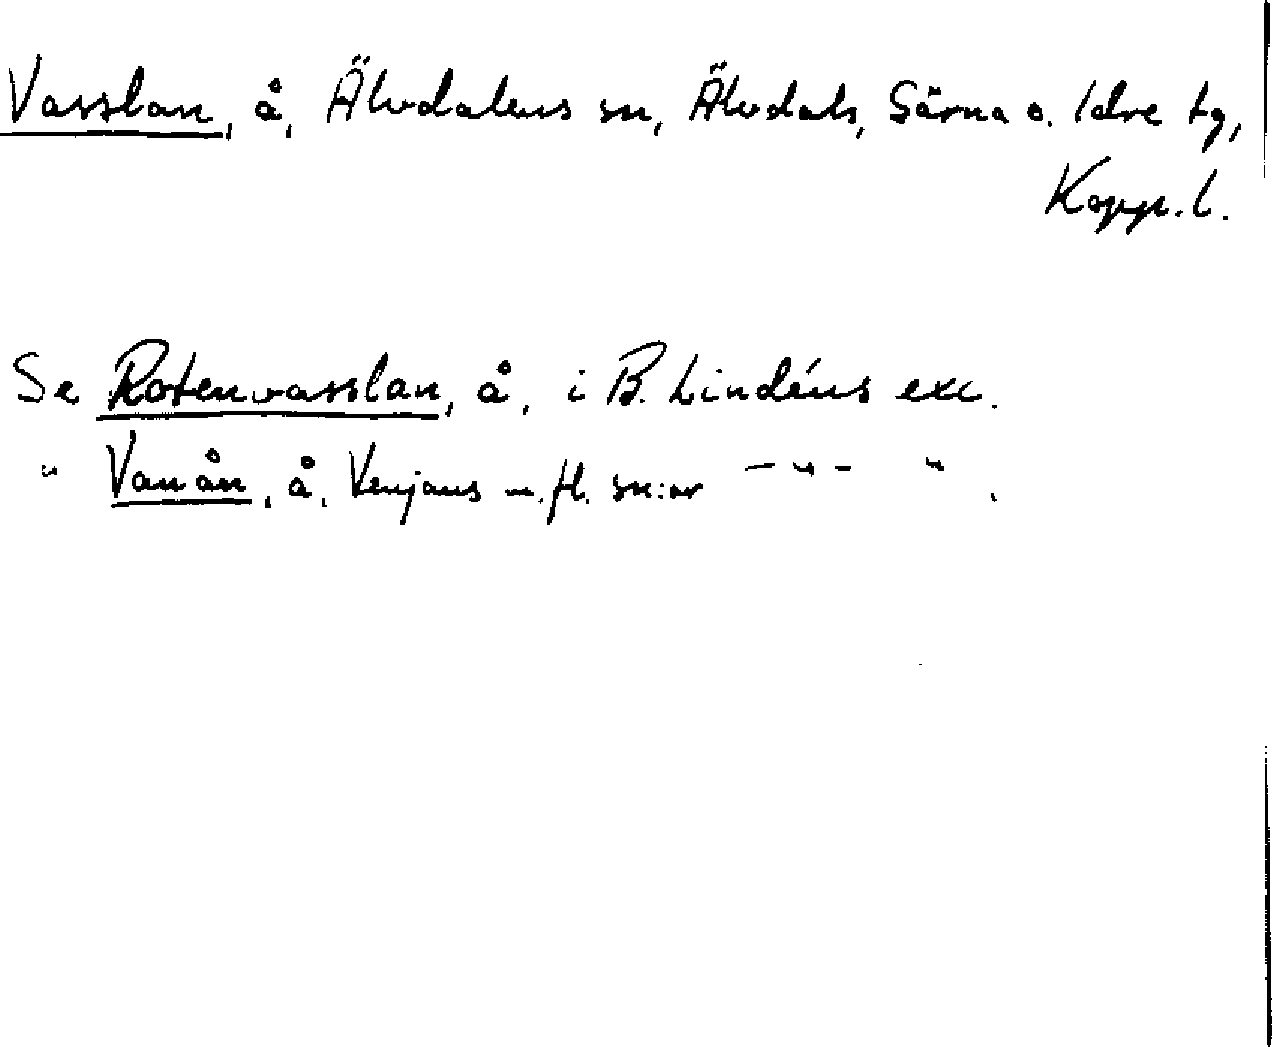 Vasslan, å, Älvdalens sn, Älvdals, Särna o. Idre tg,
Kopp. l.
Se Rotenvasslan, å, i B. Lindéns exc.
" Vanån, å, Venjans m. fl. sn:ar – " – " .